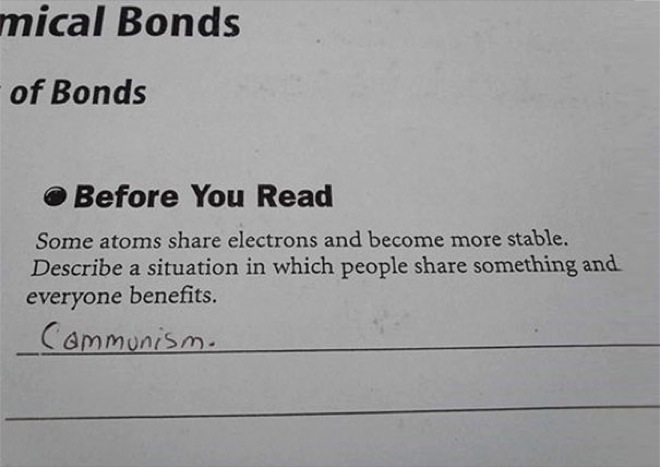 mical Bonds
of Bonds
Before You Read
Some atoms share electrons and become more stable.
Describe a situation in which people share something and
everyone benefits.
Communism.